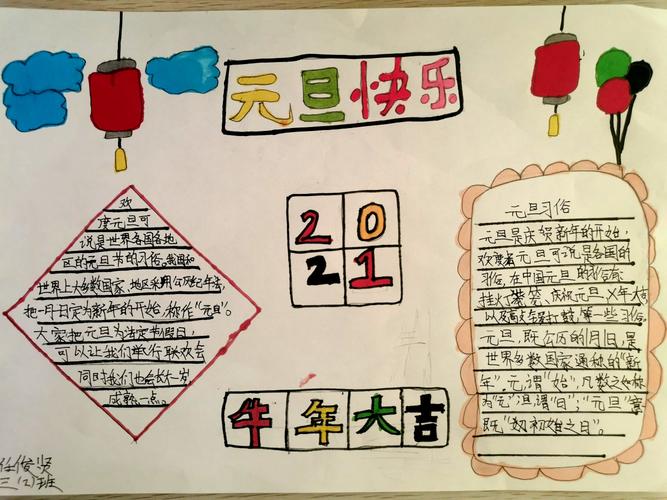 元旦快乐
欢
度元旦可
说是世界各国各地
区的元旦节的习俗,我国和
世界上大多数国家、地区采用公历纪年法,
把一月一日定为新年的开始,称作“元旦”。
大家把元旦为法定节假日,
可以让我们举行联欢会
同时我们也会长大一岁,
成熟一点。
20
21
牛年大吉
元旦习俗
元旦是庆祝新年的开始,
欢度元旦可说是各国的
习俗,在中国元旦的习俗有
挂灯笼等,庆祝元旦
打鼓,等一些习俗
元旦,既公历的1月1日,是
世界多数国家通称的“新
年”。元,谓“始”,凡数之始称
为“元”;旦,谓“日”;“元旦”意
既“初始之日”。
任俊贤
三(2)班